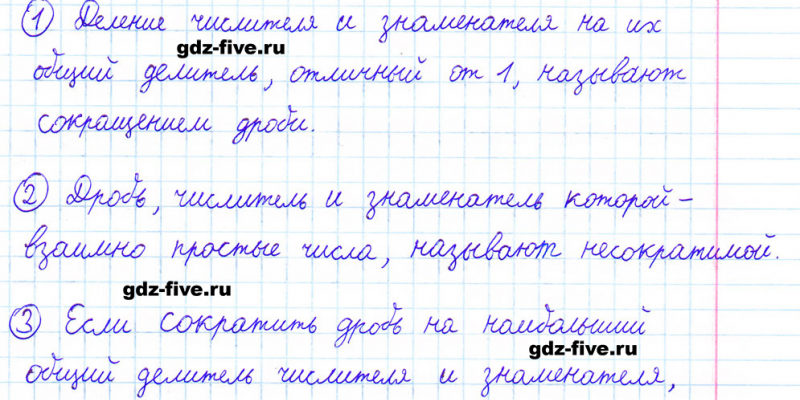 1 Деление числителя и знаменателя на их
gdz-five.ru
общий делитель, отличный от 1, называют
сокращением дроби.
2 Дробь, числитель и знаменатель которой -
взаимно простые числа, называют несократимой.
gdz-five.ru
3 Если сократить дробь на наибольший
gdz-five.ru
общий делитель числителя и знаменателя,